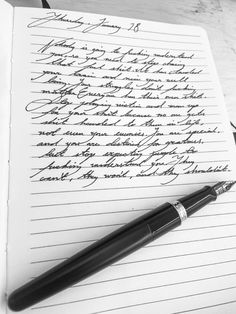 Thursday, January 28
Nobody is going to fucking understand
you, so you need to stop doing
that. shit has clouded
your brain and your
your struggles don't fucking
matter. Everyone has their own shit.
Stop playing victim and man up
for your shit because no one gets
shit handed to them in life,
not even your enemies. You are special,
and you are destined for greatness,
but stop expecting people to
fucking understand you. They
can't, they won't, and they shouldn't.